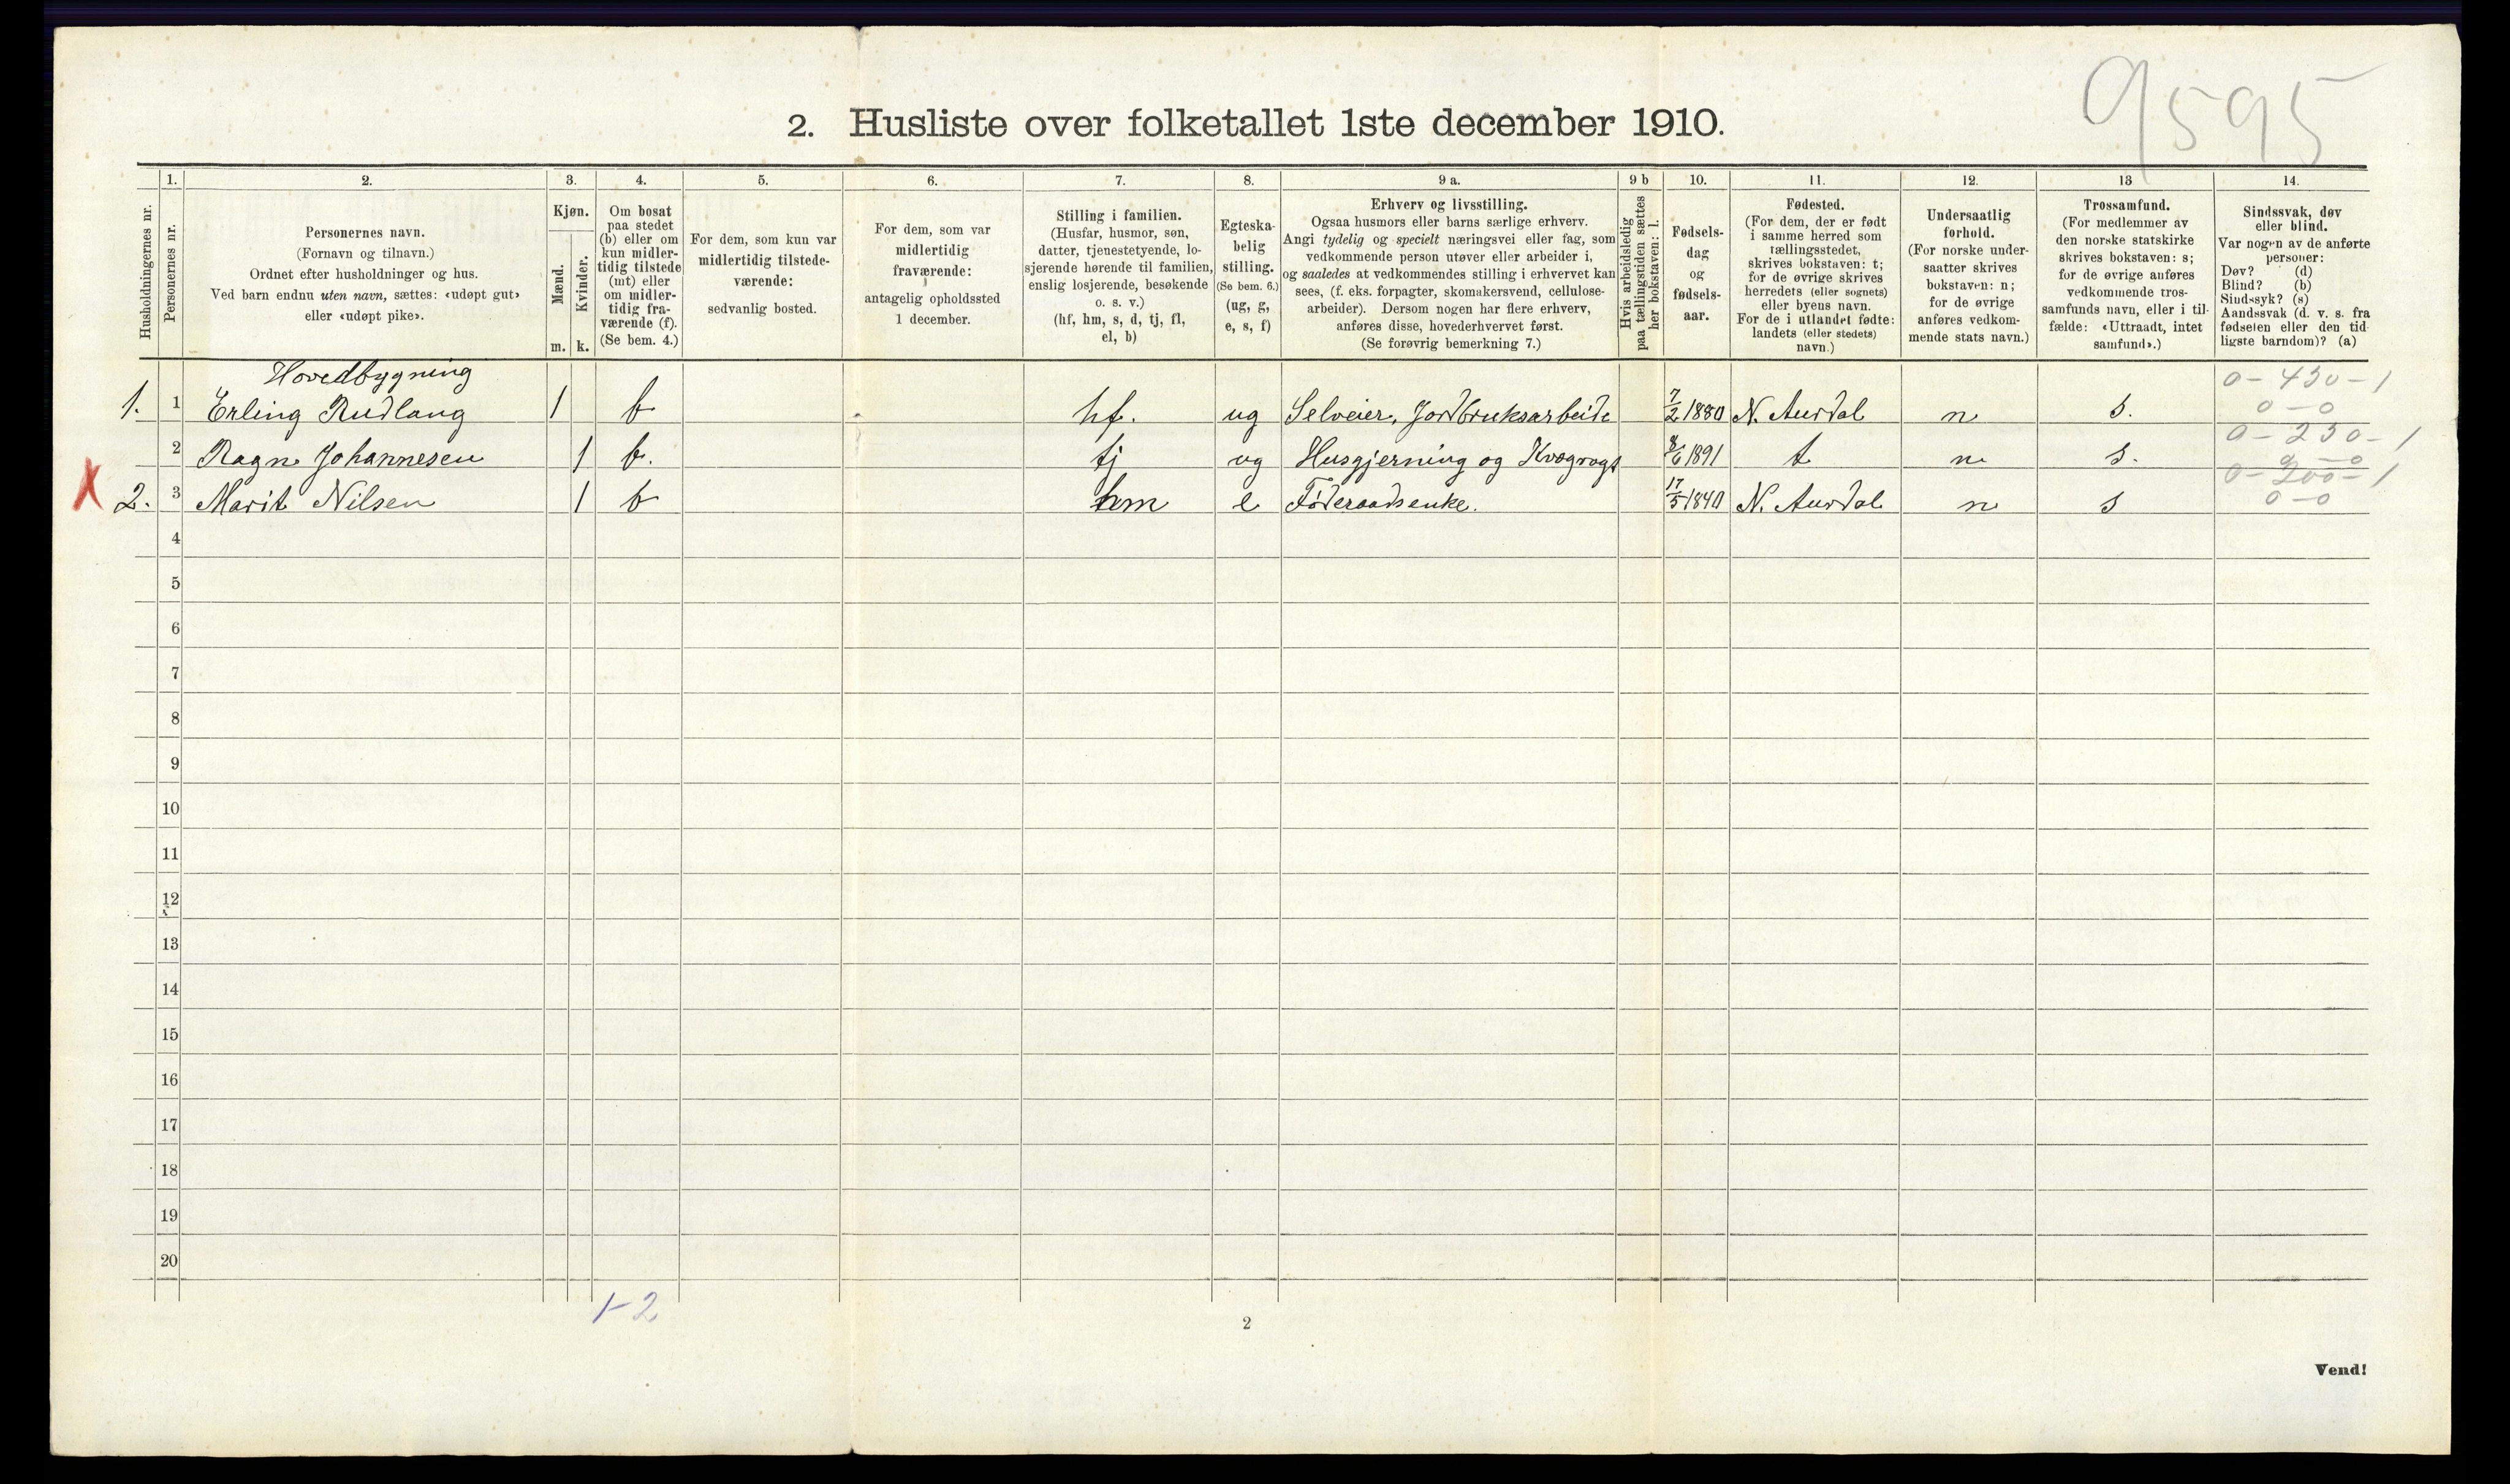 9595
2. Husliste over folketallet 1ste december 1910.
1. 2. 3. 4. 5. 6. 7. 8. 9 a. 9 b 10. 11. 12. 13 14.
Husholdningernes nr.
Personernes nr.
Personernes navn.
(Fornavn og tilnavn.)
Ordnet efter husholdninger og hus.
Ved barn endnu uten navn, sættes: «udøpt gut»
eller «udøpt pike».
Kjøn.
Mænd.
Kvinder.
m. k.
Om bosat
paa stedet
(b) eller om
kun midler-
tidig tilstede
(mt) eller
om midler-
tidig fra-
værende (f).
(Se bem. 4.)
For dem, som kun var
midlertidig tilstede-
værende:
sedvanlig bosted.
For dem, som var
midlertidig
fraværende:
antagelig opholdssted
1 december.
Stilling i familien.
(Husfar, husmor, søn,
datter, tjenestetyende, lo-
sjerende hørende til familien,
enslig losjerende, besøkende
o. s. v.)
(hf, hm, s, d, tj, fl,
el, b)
Egteska-
belig
stilling.
(Se bem. 6.)
(ug, g,
e, s, f)
Erhverv og livsstilling.
Ogsaa husmors eller barns særlige erhverv.
Angi tydelig og specielt næringsvei eller fag, som
vedkommende person utøver eller arbeider i,
og saaledes at vedkommendes stilling i erhvervet kan
sees, (f. eks. forpagter, skomakersvend, cellulose-
arbeider). Dersom nogen har flere erhverv,
anføres disse, hovederhvervet først.
(Se forøvrig bemerkning 7.)
Hvis arbeidsledig
paa tællingstiden sættes
her bokstaven: l.
Fødsels-
dag
og
fødsels-
aar.
Fødested.
(For dem, der er født
i samme herred som
tællingsstedet,
skrives bokstaven: t;
for de øvrige skrives
herredets (eller sognets)
eller byens navn.
For de i utlandet fødte:
landets (eller stedets)
navn.)
Undersaatlig
forhold.
(For norske under-
saatter skrives
bokstaven: n;
for de øvrige
anføres vedkom-
mende stats navn.)
Trossamfund.
(For medlemmer av
den norske statskirke
skrives bokstaven: s;
for de øvrige anføres
vedkommende tros-
samfunds navn, eller i til-
fælde: «Uttraadt, intet
samfund».)
Sindssvak, døv
eller blind.
Var nogen av de anførte
personer:
Døv? (d)
Blind? (b)
Sindssyk? (s)
Aandssvak (d. v. s. fra
fødselen eller den tid-
ligste barndom)? (a)
Hovedbygning
0-450-1
1. 1 Erling Rudlang 1 b hf. ug Selveier, Jordbruksarbeide 7/2 1880 N. Aurdal n s. 0-0
0-250-1
2 Ragn Johannesen 1 b. tj ug Husgjerning og Kvægrogt 8/6 1891 t n s. 0-0
0-200-1
X 2. 3 Marit Nilsen 1 b hm e Føderaadsenke. 17/5 1840 N. Aurdal n s 0-0
4
5
6
7
8
9
10
11
12
13
14
15
16
17
18
19
20
1-2
2
Vend!